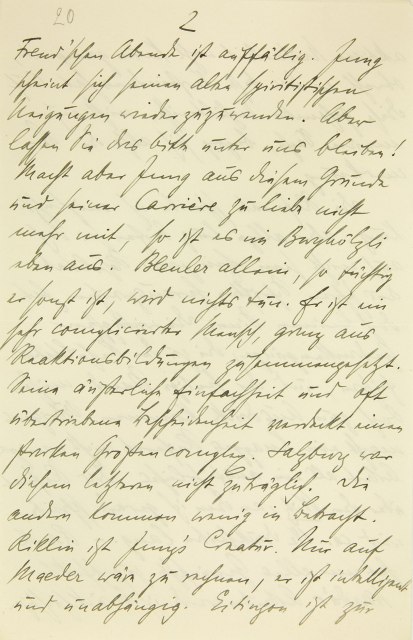 20
2
Freud'schen Abende ist auffällig. Jung
scheint sich seinen alten spiritistischen
Neigungen wieder zuzuwenden. Aber
lassen Sie das bitte unter uns bleiben!
Macht aber Jung aus diesem Grunde
und seiner Carrière zu liebe nicht
mehr mit, so ist es im Burghölzli
eben aus. Bleuler allein, so tüchtig
er sonst ist, wird nichts tun. Er ist ein
sehr complicierter Mensch, ganz aus
Reaktionsbildungen zusammengesetzt.
Seine äußerliche Einfachheit und oft
übertriebene Bescheidenheit verdeckt einen
starken Größencomplex. Salzburg war
diesem letzteren nicht zuträglich. Die
andern kommen wenig in Betracht.
Riklin ist Jung's Creatur. Nur auf
Maeder wäre zu rechnen, er ist intelligent
und unabhängig. Eitingon ist zur